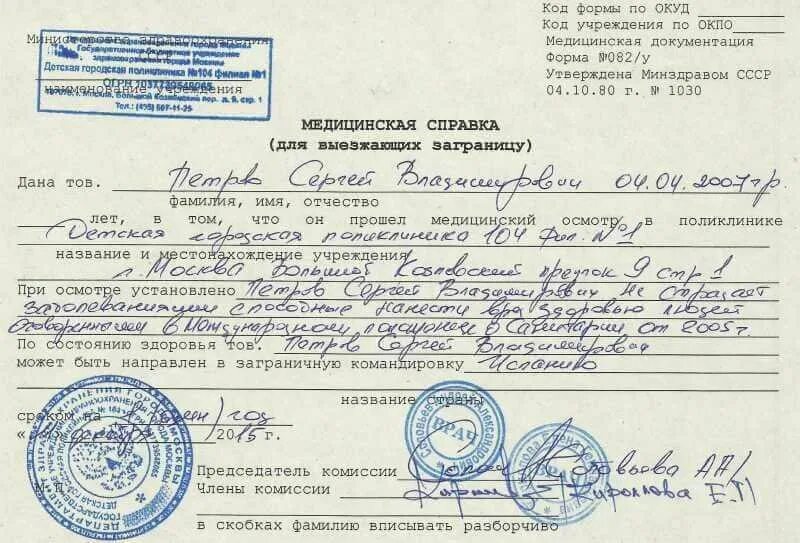 Код формы по ОКУД
Код учреждения по ОКПО
Медицинская документация
Форма №082/у
Утверждена Минздравом СССР
04.10.80 г. № 1030
Министерство здравоохранения
Государственное бюджетное учреждение
здравоохранения города Москвы
Детская городская поликлиника №104 филиал №1
ОГРН
наименование учреждения
г. Москва, Большой Козловский пер. д. 9, стр. 1
Тел.: (495) 607-11-25
МЕДИЦИНСКАЯ СПРАВКА
(для выезжающих заграницу)
Дана тов. Петров Сергей Владимирович 04.04.2007г.р.
фамилия, имя, отчество
лет, в том, что он прошел медицинский осмотр в поликлинике
Детская городская поликлиника 104 фил. №1
название и местонахождение учреждения
г. Москва Большой Козловский 9 стр 1
При осмотре установлено Петров Сергей Владимирович не страдает
заболеваниями способные нанести вред здоровью людей
в Международном в Санитарии от 2005г
По состоянию здоровья тов. Петров Сергей Владимирович
может быть направлен в заграничную командировку Испанию
название страны
сроком на 1 (один) год
2015г.
ВРАЧ
ВРАЧ
Председатель комиссии Соловьева АА/
М.П. Члены комиссии Кириллова Е.П
в скобках фамилию вписывать разборчиво